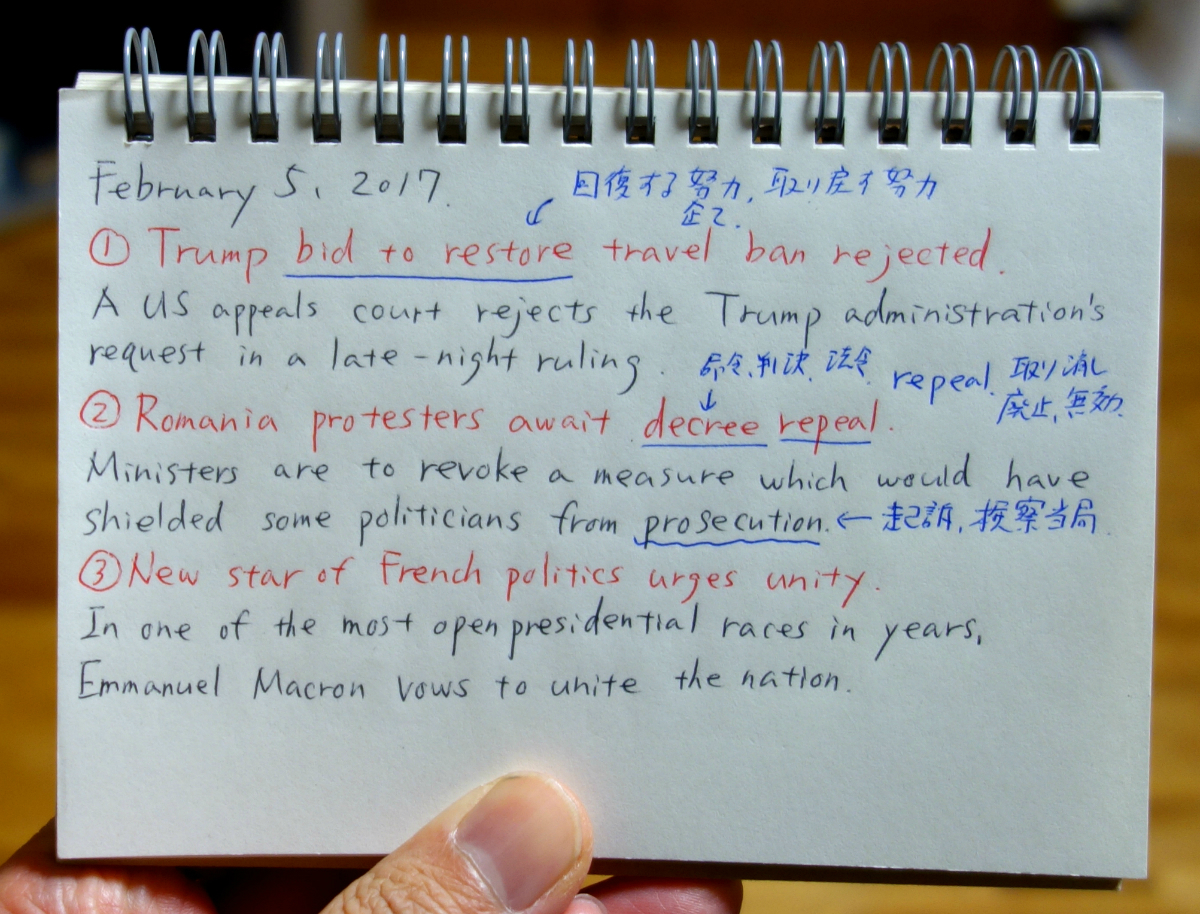 February 5, 2017.
回復する努力, 取り戻す努力
企て.
① Trump bid to restore travel ban rejected.
A US appeals court rejects the Trump administration's
request in a late-night ruling.
命令、判決、法令
repeal. 取り消し
廃止, 無効.
② Romania protesters await decree repeal.
Ministers are to revoke a measure which would have
shielded some politicians from prosecution. ← 起訴, 検察当局.
③ New star of French politics urges unity.
In one of the most open presidential races in years,
Emmanuel Macron vows to unite the nation.